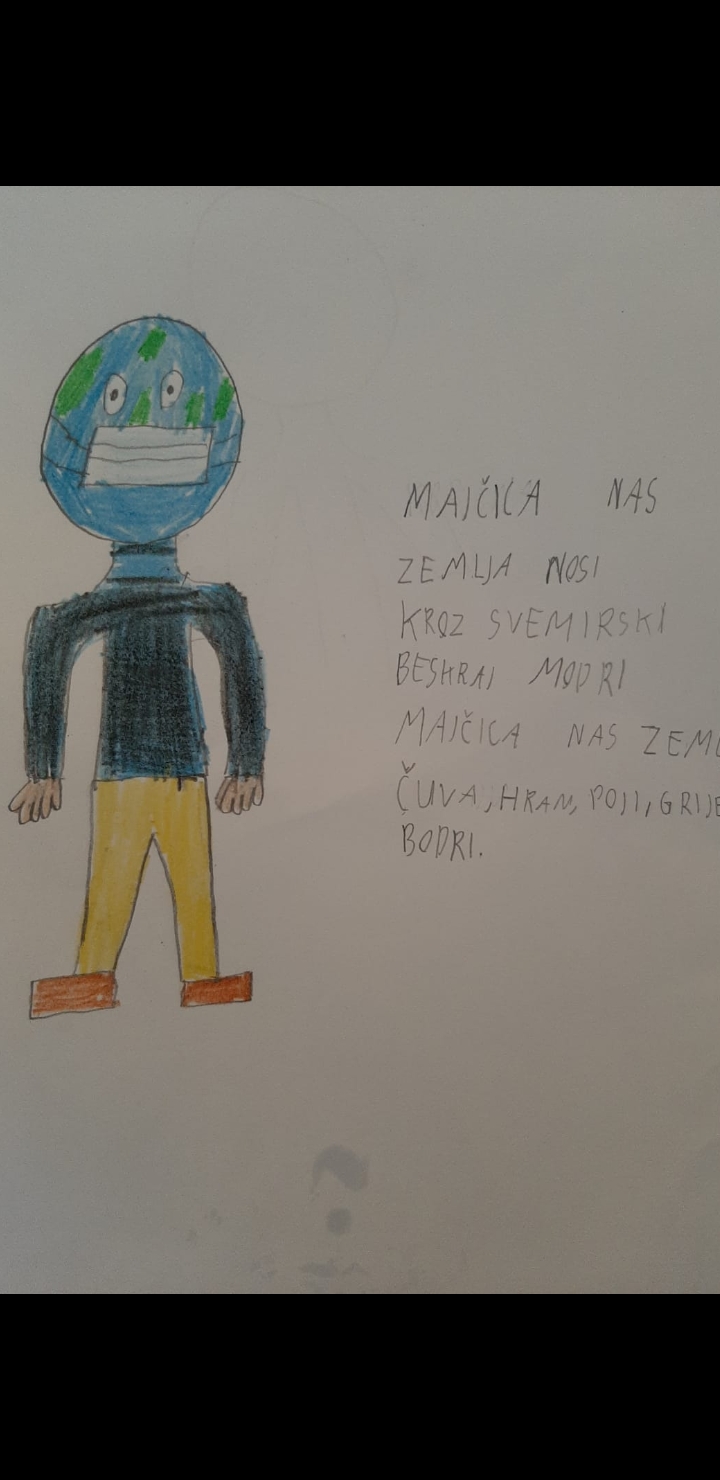 MAJČICA NAS
ZEMLJA NOSI
KROZ SVEMIRSKI
BESKRAJ MODRI
MAJČICA NAS ZEML
ČUVA, HRANI, POJI, GRIJE
BODRI.